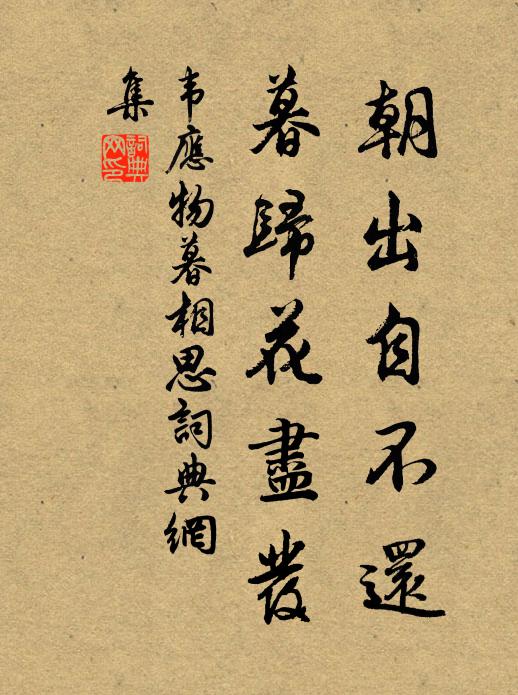 朝出自不還
暮歸花盡發
韦應物暮相思詞典網
集
詞典
网印